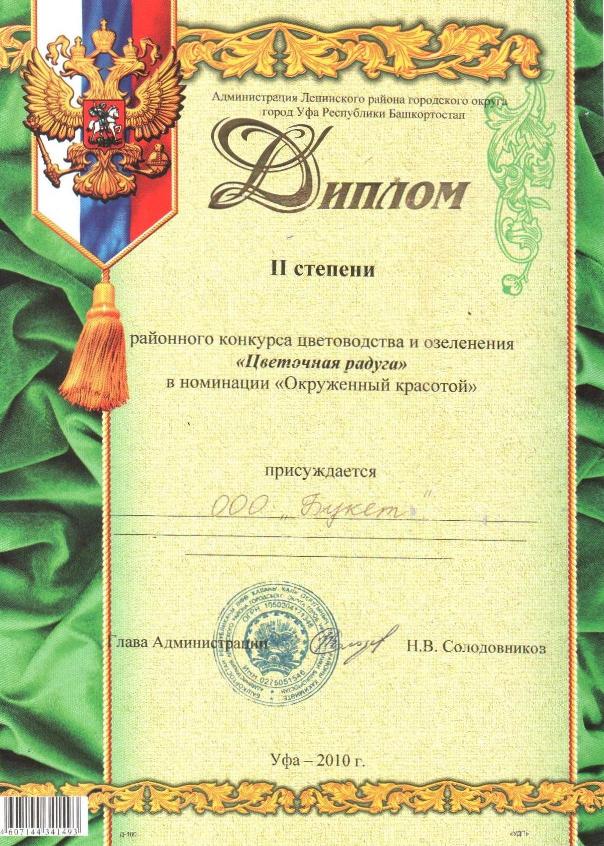 Администрация Ленинского района городского округа
город Уфа Республики Башкортостан
Диплом
II степени
районного конкурса цветоводства и озеленения
«Цветочная радуга»
в номинации «Окруженный красотой»
присуждается
ООО „Букет"
Глава Администрации
Н.В. Солодовников
ИНН 0275051546
Уфа – 2010 г.
4607144341493